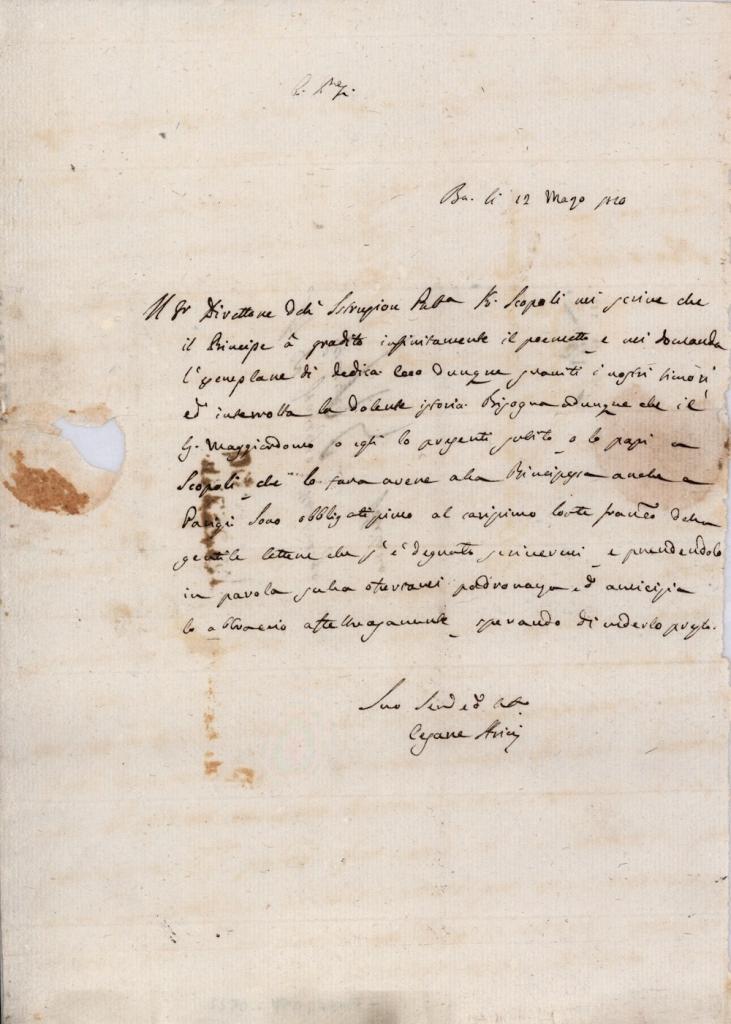 Bs. li 12 Mago 1810
Il Sr Direttore della Istruzion Pubba Kr Scopoli mi scrive che
il Principe à gradito infinitamente il poemetto e mi domanda
l'esemplare di dedica. Ecco dunque svaniti i nostri timori
ed interrotta la dolente istoria. Bisogna adunque che il
Sr Maggiordomo o egli lo presenti subito o lo passi a
Scopoli che lo farà avere alla Principessa anche a
Parigi. Sono obbligatissimo al carissimo Conte Franco della
gentile lettera che s'è degnato scrivermi e prendendolo
in parola sulla offertami padronanza ed amicizia
lo abbraccio affettuosamente sperando di vederlo presto.
Suo
Cesare Arici